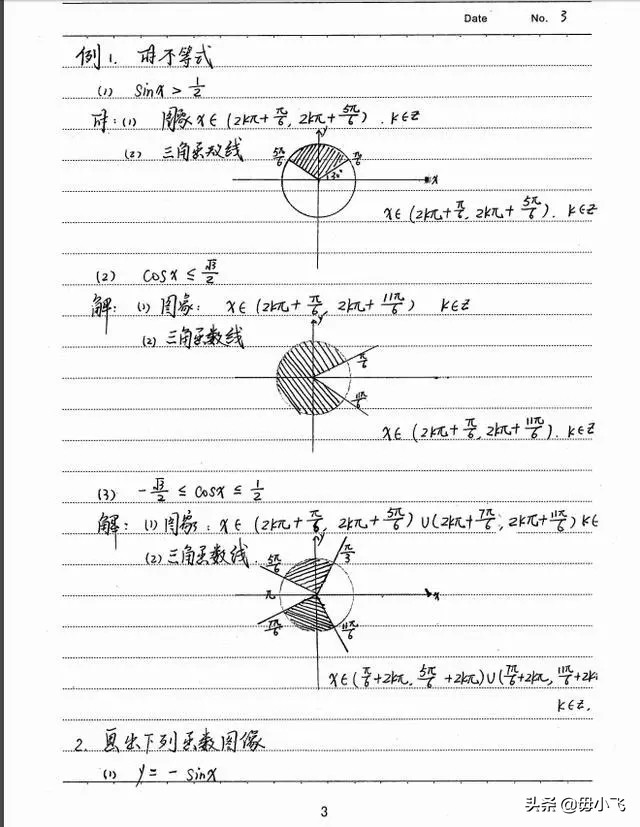 Date No. 3
例1. 解不等式
(1) sinx > 1/2
解:(1) 图象 x∈(2kπ+π/6, 2kπ+5π/6). k∈Z
(2) 三角函数线
y
5π/6 π/6
30°
x
x∈(2kπ+π/6, 2kπ+5π/6). k∈Z
(2) cosx ≤ √3/2
解: (1) 图象: x∈(2kπ+π/6, 2kπ+11π/6) k∈Z
(2) 三角函数线
y
π/6
11π/6
x∈(2kπ+π/6, 2kπ+11π/6). k∈Z
(3) -√3/2 ≤ cosx ≤ 1/2
解: (1) 图象: x∈(2kπ+π/6, 2kπ+5π/6)∪(2kπ+7π/6, 2kπ+11π/6) k∈
(2) 三角函数线.
y
5π/6 π/3
π x
7π/6 11π/6
x∈(π/6+2kπ, 5π/6+2kπ)∪(7π/6+2kπ, 11π/6+2k
k∈Z.
2. 画出下列函数图像
(1) y = - sinx
3
头条 @毋小飞